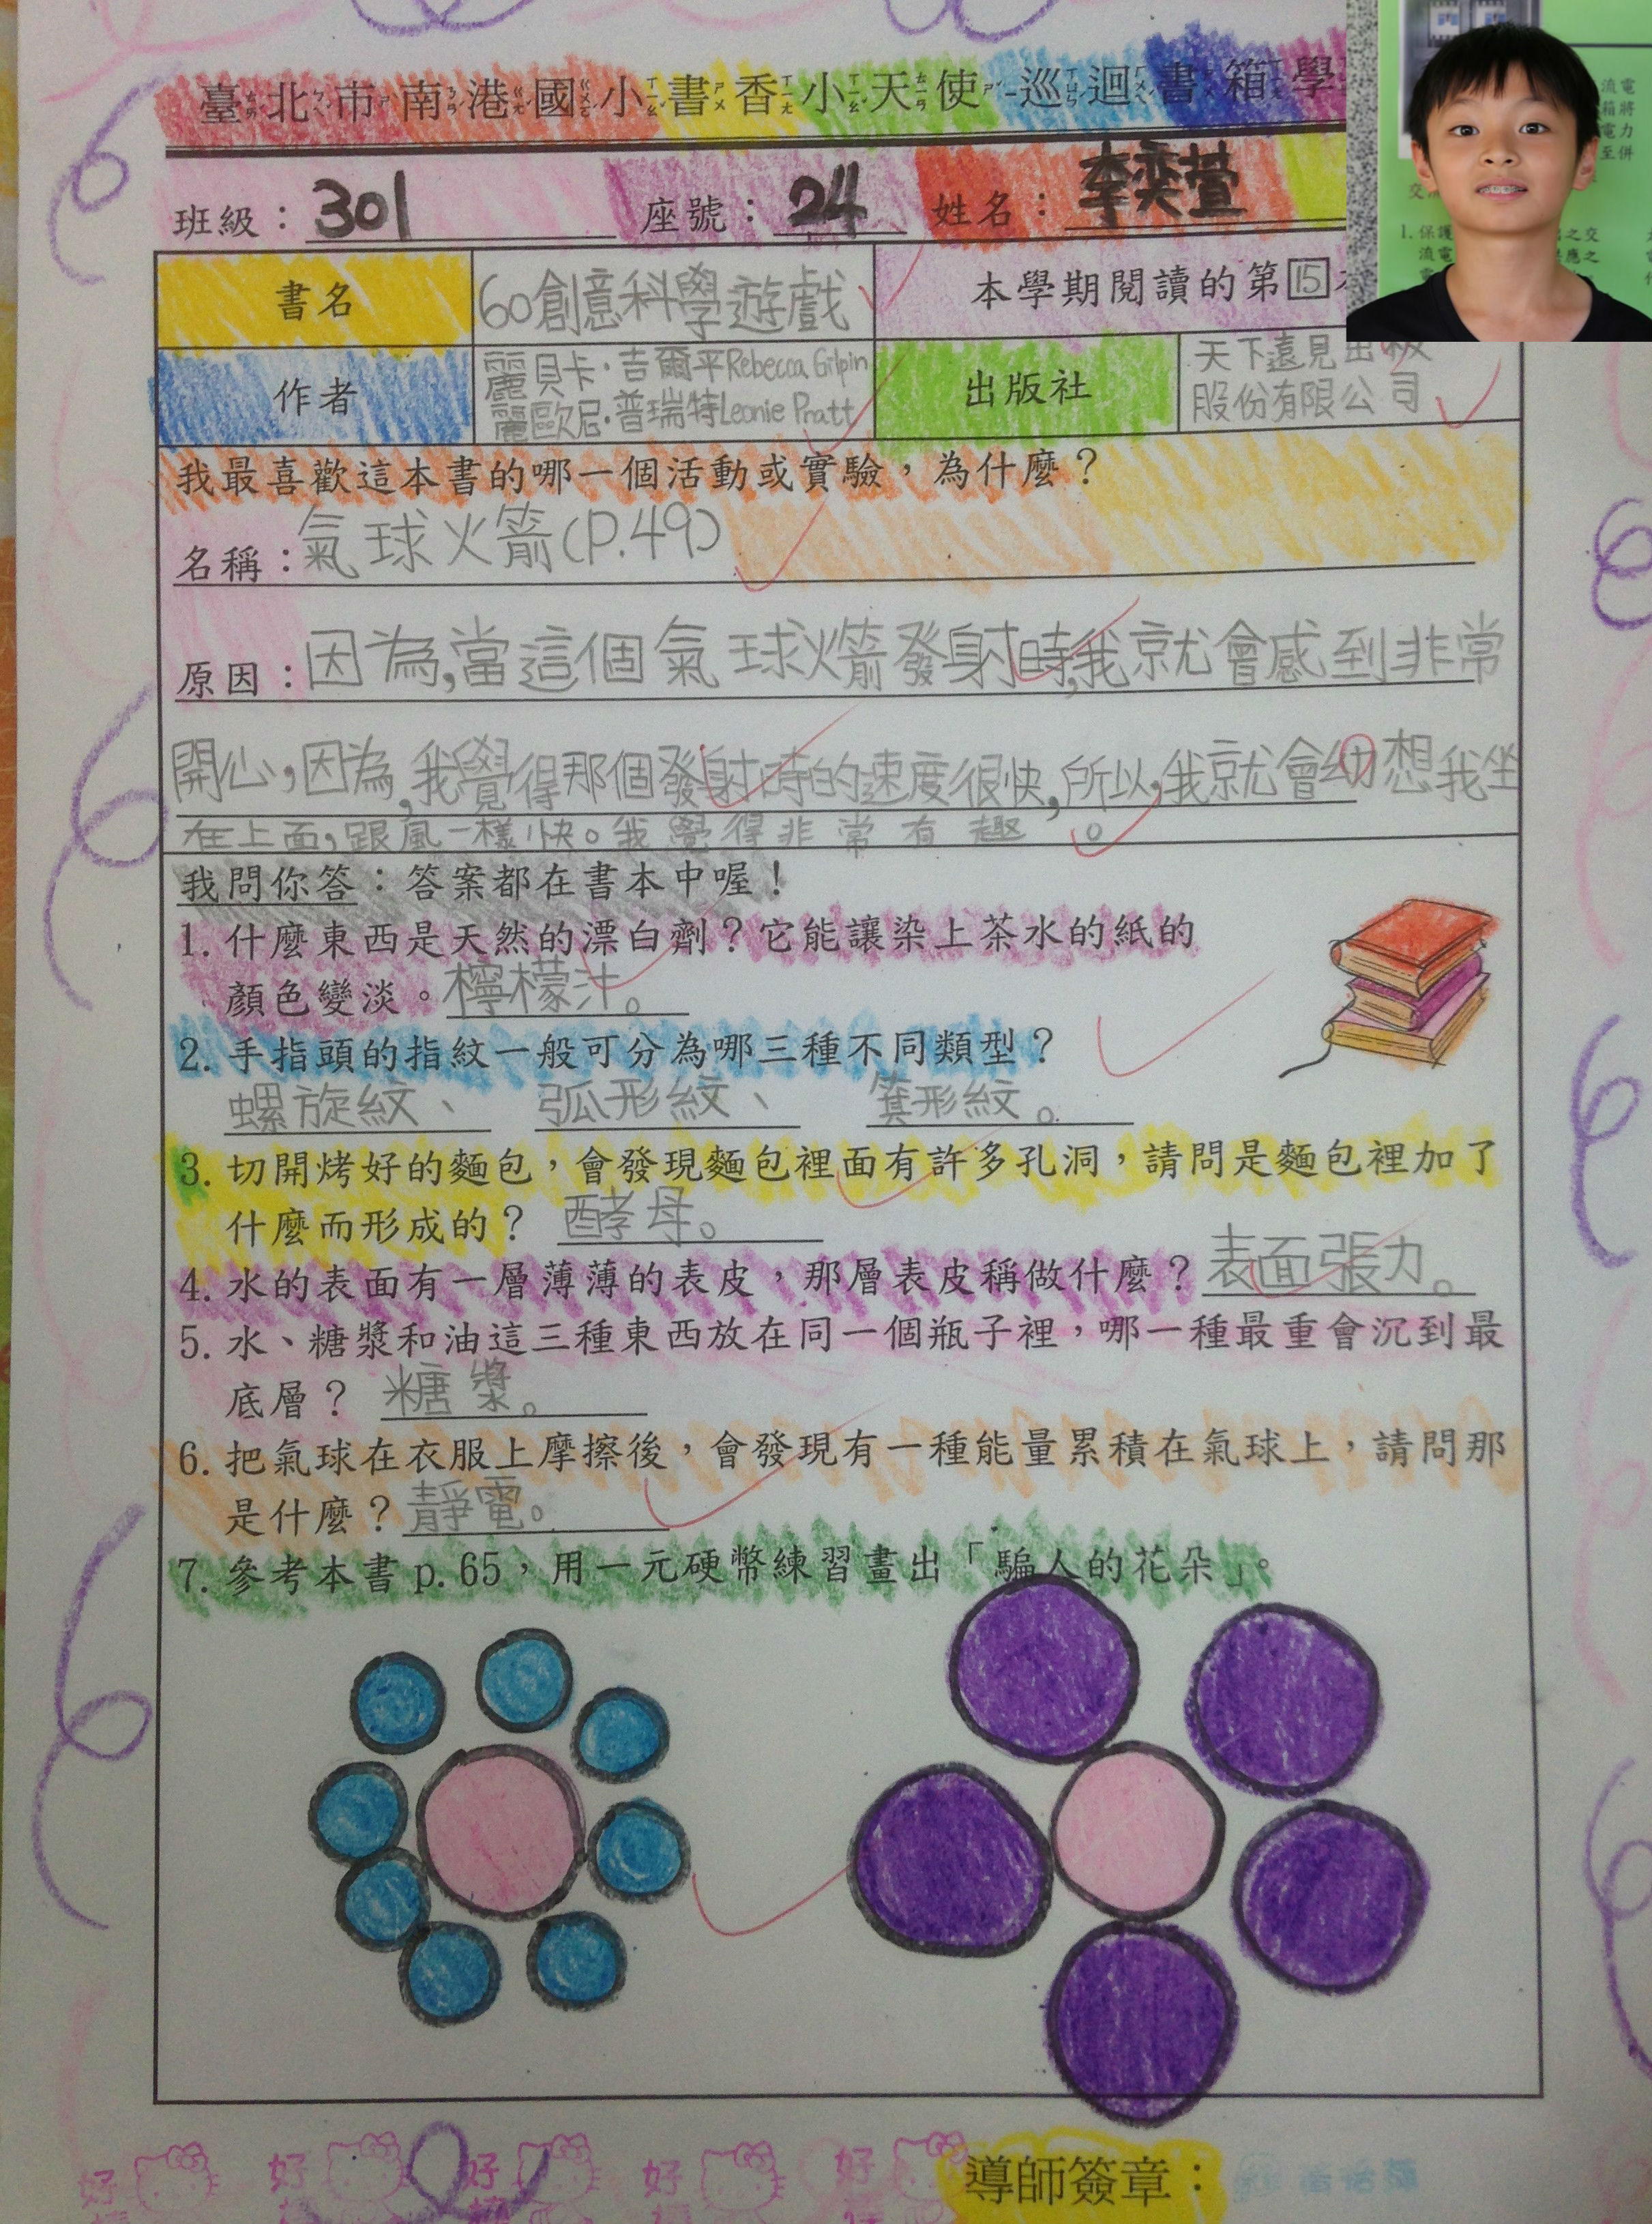 臺北市南港國小書香小天使巡迴書箱學
班級：301 座號：24 姓名：李奕萱
書名 60創意科學遊戲 本學期閱讀的第15
作者 麗貝卡·吉爾平Rebecca Gilpin 出版社 天下遠見出版
麗歐尼·普瑞特Leonie Pratt 股份有限公司
我最喜歡這本書的哪一個活動或實驗，為什麼？
名稱：氣球火箭(P.49)
原因：因為,當這個氣球火箭發射時,我就會感到非常
開心,因為,我覺得那個發射時的速度很快,所以,我就會幼想我坐
在上面,跟風一樣快。我覺得非常有趣。
我問你答：答案都在書本中喔！
1. 什麼東西是天然的漂白劑？它能讓染上茶水的紙的
顏色變淡。檸檬汁。
2. 手指頭的指紋一般可分為哪三種不同類型？
螺旋紋、 弧形紋、 箕形紋。
3. 切開烤好的麵包，會發現麵包裡面有許多孔洞，請問是麵包裡加了
什麼而形成的？ 酵母。
4. 水的表面有一層薄薄的表皮，那層表皮稱做什麼？表面張力。
5. 水、糖漿和油這三種東西放在同一個瓶子裡，哪一種最重會沉到最
底層？ 糖漿。
6. 把氣球在衣服上摩擦後，會發現有一種能量累積在氣球上，請問那
是什麼？靜電。
7. 參考本書 p.65，用一元硬幣練習畫出「騙人的花朵」。
好 好 好 好 好
導師簽章：
流電
箱將
電力
至併
交
1. 保護 之交
流電 應之